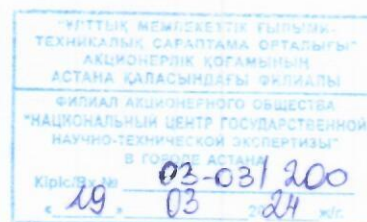 "ҰЛТТЫҚ МЕМЛЕКЕТТІК ҒЫЛЫМИ-
ТЕХНИКАЛЫҚ САРАПТАМА ОРТАЛЫҒЫ"
АКЦИОНЕРЛІК ҚОҒАМЫНЫҢ
АСТАНА ҚАЛАСЫНДАҒЫ ФИЛИАЛЫ
ФИЛИАЛ АКЦИОНЕРНОГО ОБЩЕСТВА
"НАЦИОНАЛЬНЫЙ ЦЕНТР ГОСУДАРСТВЕННОЙ
НАУЧНО-ТЕХНИЧЕСКОЙ ЭКСПЕРТИЗЫ"
В ГОРОДЕ АСТАНА
Кіріс/Вх.№ 03-03/200
« 19 » 03 2024 ж/г.